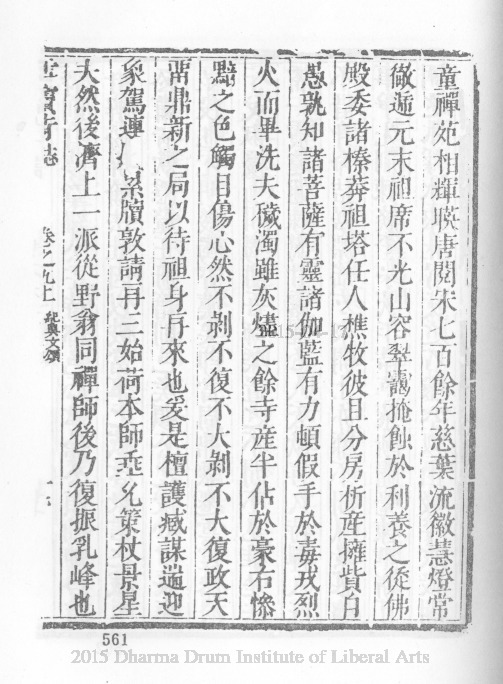 童禪苑相輝暎唐閱宋七百餘年慈葉流徽慧燈常
徹遞元末祖席不光山容翠靄掩蝕於利養之徒佛
殿委諸榛莽祖塔任人樵牧彼且分房析產擁貲日
愚孰知諸菩薩有靈諸伽藍有力頓假手於毒戎烈
火而畢洗夫穢濁雖灰燼之餘寺産半佔於豪右慘
黯之色觸目傷心然不剥不復不大剥不大復政天
留鼎新之局以待祖身再來也爰是檀護臧謀遄迎
象駕連 累牘敦請再三始荷本師垂允策杖景星
大然後濟上一派從野翁同禪師後乃復振乳峰也
寺志
卷之九上 紀興文頌
561
2015 Dharma Drum Institute of Liberal Arts